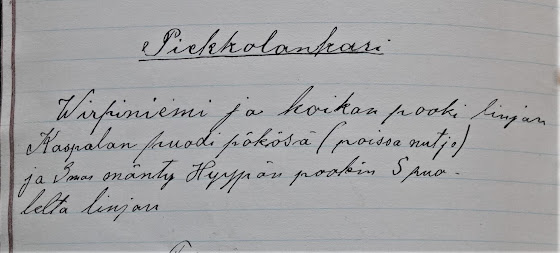 Piekkolankari
Wirpiniemi ja koikan pooki linjan
Kaopalan puodi pökösä (poissa nutjo)
ja 3mas mänty Hyypän pookin S puo-
lelta linjan